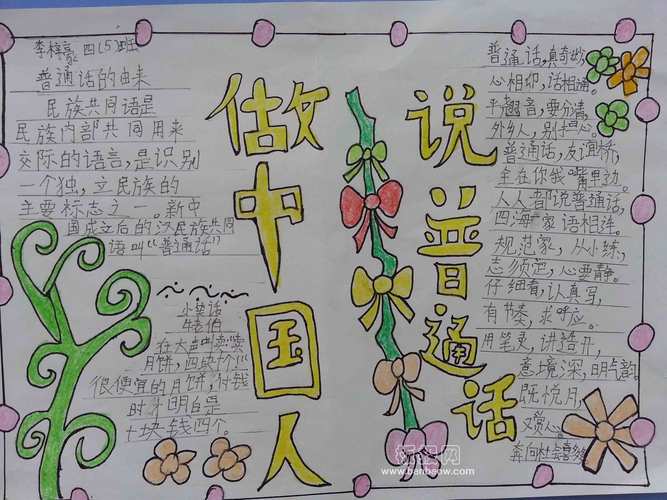 李梓豪 四(5)班
普通话的由来
民族共同语是
民族内部共同用来
交际的语言,是识别
一个独,立民族的
主要标志之一。新中
国成立后的汉民族共同
语叫“普通话”
小笑话
在大声叫卖
月饼,四块一个!
很便宜的月饼,付钱
时才明白是
十块钱四个。
做中国人
说普通话
普通话,真奇妙,
心相印,话相通。
平翘音,要分清,
外乡人,别担心。
普通话,友谊桥,
全在你我嘴里边。
人人都说普通话,
四海一家语相连。
规范家,从小练,
志须定,心要静。
仔细看,认真写,
有节奏,求呼应。
用笔灵,讲提开,
意境深,明气韵。
既悦目,
又赏心。
www.banbaow.com